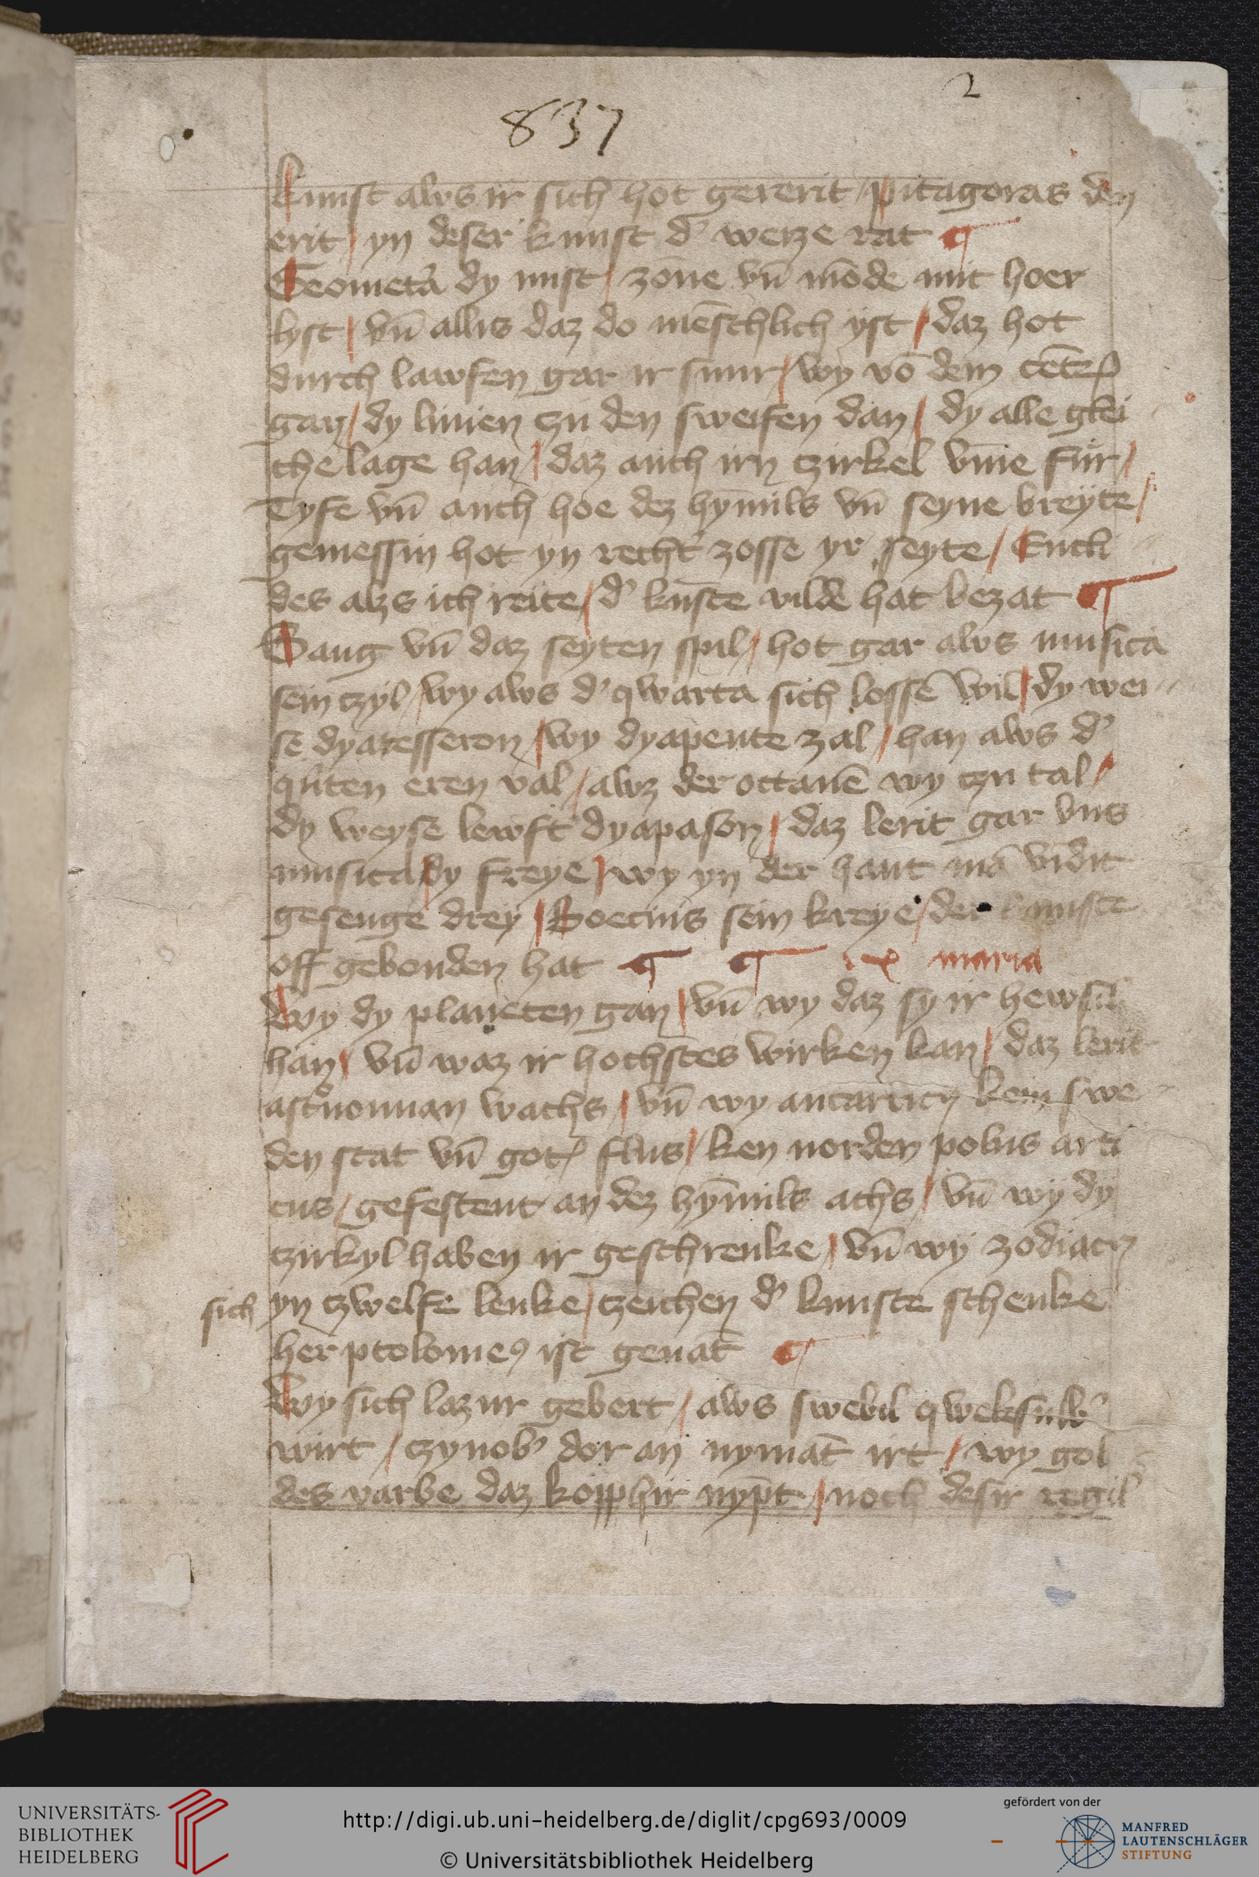 2
837
kunst aws ir sich hot gererit / pitagoras den
erit / yn deser kunst d' weize rat ¶
Geomet'a dy mist / zone vn̄ mōde mit hoer
lyst / vn̄ allis daz do mēschlich yst / daz hot
durch lawfen gar ir sinir / wy vō dem cētrū
gan / dy linien tzu den sweifen dan / dy alle glei
che lage han / daz auch irn tzirkel vmīe für /
Tyfe vn̄ auch hoe dez hȳmils vn̄ seyne breyte /
gemessin hot yn recht' zosse yr seyte / Eucli
des alzs ich reite / d' kunste wilde hat bezat ¶
Sang vn̄ daz seyten spil / hot gar aws musica
sein tzyl / wy aws d' qwarta sich lossē wil / dy wei
se dyatesseron / wy dyapente zal / han aws d'
qūten eren val / awz der octauē wy tzu tal /
dy weyse lewft dyapason / daz lerit gar vns
musica dy freye / wy yn der hant mā vīdit
gesenge drey / Boecius sein kreye / der kunste
off gebonden hat ¶ ¶ maria
Wy dy planeten gan / vn̄ wy daz sy ir hewsir
han / vn̄ waz ir hochstes wirken kan / daz lerit
astronomian wachs / vn̄ wy antarticū kein swe
den stat vn̄ gotz flus / ken norden polus arti
cus / gefestent an dez hȳmils achs / vn̄ wy dy
tzirkyl haben ir geschrenke / vn̄ wy zodiacū
sich yn tzwelfe lenke / tzeichen d' kunste schenke
her ptolomeꝰ ist genāt ¶
Wy sich lazur gebert / aws swebil qweksilb'
wirt / tzynob' dor an nymāt irt / wy gol
des varbe daz kopphir nȳpt / noch desir regil
UNIVERSITÄTS-
BIBLIOTHEK
HEIDELBERG
http://digi.ub.uni-heidelberg.de/diglit/cpg693/0009
© Universitätsbibliothek Heidelberg
gefördert von der
MANFRED
LAUTENSCHLÄGER
STIFTUNG